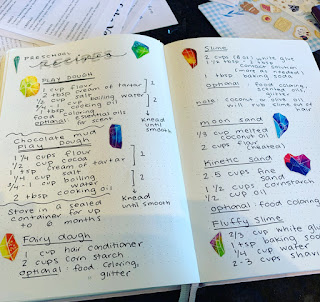 PRESCHOOL
recipes
PLAY DOUGH
1 cup flour
2 tbsp cream of tartar
1/2 cup salt
3/4 - 1 cup boiling water
2 tbsp cooking oil
food coloring
optional: essential oils for scent
1
2
Knead until smooth
Chocolate mud
Play dough
1 1/4 cups flour
1/2 cup cocoa
1 tsp cream of tartar
1/4 cup salt
3/4 - 1 cup boiling water
2 tbsp cooking oil
1
2
Knead until smooth
Store in a sealed
container for up
to 6 months
Fairy dough
1 cup hair conditioner
2 cups corn starch
optional: food coloring,
glitter
Slime
2 cups (8oz) white glue
1 1/2 tbsp - 2 tbsp
contact solution
(more as needed)
1 tbsp baking soda
optional: food coloring,
scented
glitter
note: coconut or olive oil
will rub slime out of
hair
moon sand
1/3 cup melted
coconut oil
2 cups flour
Kinetic sand
2.5 cups fine
sand
1 1/2 cups cornstarch
1/2 cup oil
optional: food coloring
Fluffy Slime
2/3 cup white glue
1 tsp baking soda
1/4 cup water
2-3 cups